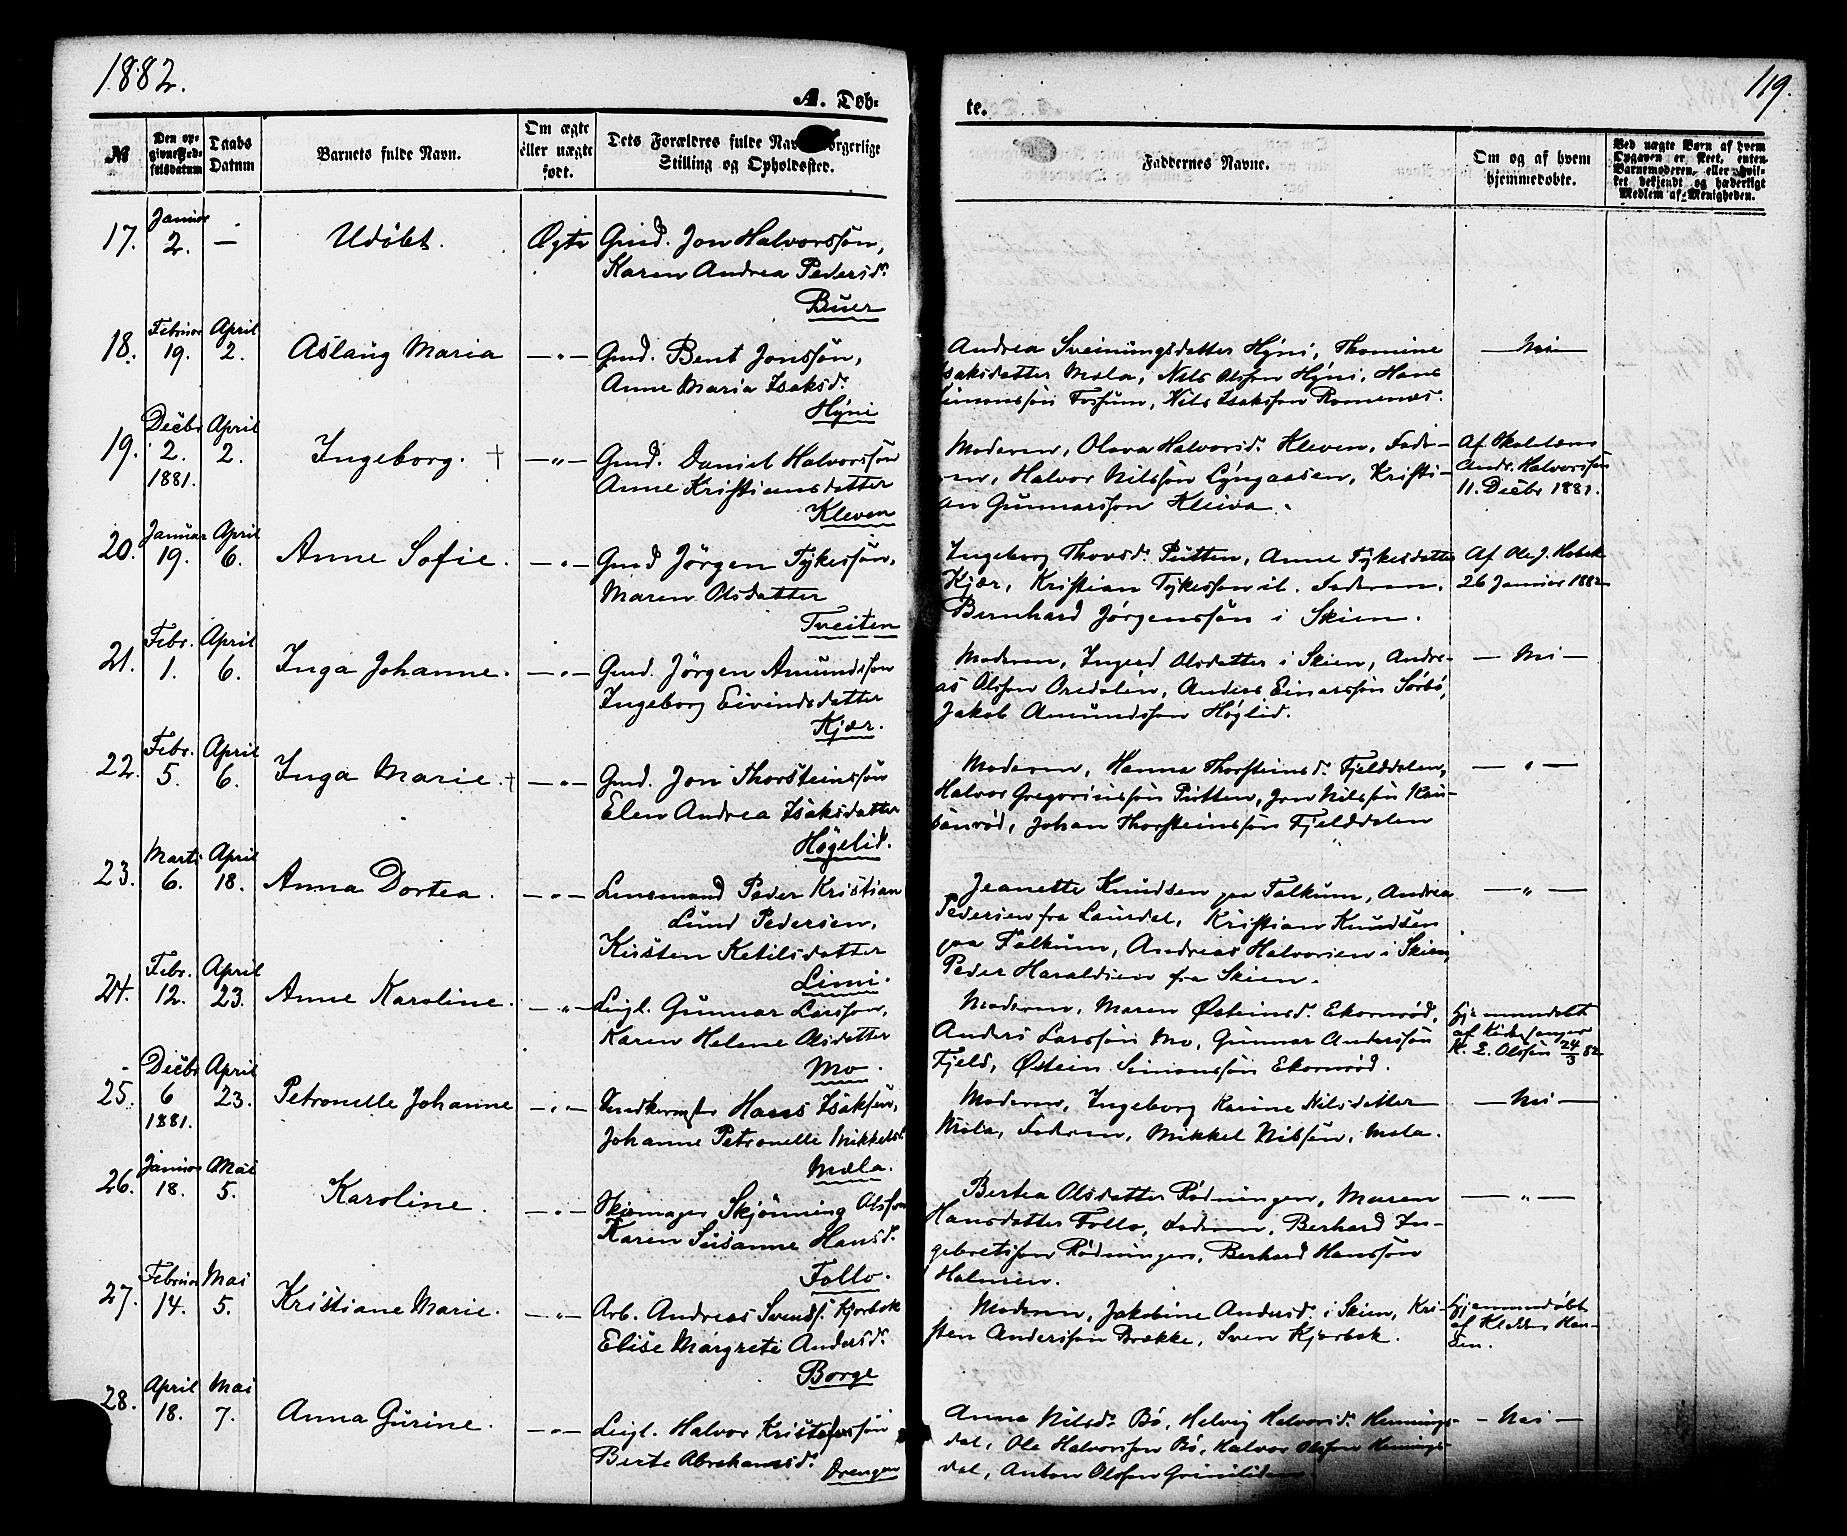 1882.
119.
A. Døb-
te.
№
Den op-
givne Fød-
selsdatum
Daabs
Datum
Barnets fulde Navn.
Om ægte
eller uægte
født.
Dets Forældres fulde Nav orgerlige
Stilling og Opholdssted.
Faddernes Navne.
Om og af hvem
hjemmedøbt.
Ved uægte Børn af hvem
Opgaven er skeet, enten
Barnemoderen, eller hvil-
ket bekjendt og hæderligt
Medlem af Menigheden.
17. Januar 2. — Udöbt. Ægte Gmd. Jon Halvorssön,
Karen Andrea Pedersd.
Buer
18. Februar 19. April 2. Aslaug Maria —"— Gmd. Bent Jonssön,
Anne Maria Isaksd.
Hÿni
Andrea Sveinungsdatter Hÿni, Thomine
Isaksdatter Mæla, Nils Olssön Hÿni, Hans
Simonssön Fossum, Nils Isakssön Romenæs.
— Nei —
19. Decbr 2. 1881. April 2. Ingeborg. † —"— Gmd. Daniel Halvorssön
Anne Kristiansdatter
Kleven
Moderen, Olava Halvorsd. Kleven, Fade-
ren, Halvor Nilssön Lÿngaasen, Kristi-
an Gunnarssön Kleiva.
Af Skolelærer
Andr. Halvorssön
11. Decbr 1881.
20. Januar 19. April 6. Anne Sofie. —"— Gmd Jörgen Tÿkessön,
Maren Olsdatter
Tveiten
Ingeborg Thovsd. Putten, Anne Tÿkesdatter
Kjær, Kristian Tÿkessön ib. Faderen,
Bernhard Jörgenssön i Skien.
Af Ole J. Kobæk
26 Januar 1882
21. Febr. 1. April 6. Inga Johanne. —"— Gmd. Jörgen Amundssön
Ingeborg Eivindsdatter
Kjær.
Moderen, Ingerd Olsdatter i Skien, Andre-
as Olssön Oredalen, Anders Einarssön Sörbö,
Jakob Amundssön Höglid.
— Nei —
22. Febr. 5. April 6. Inga Marie. † —"— Gmd. Jon Thorsteinssön
Elen Andrea Isaksdatter
Högelid.
Moderen, Hanna Thorsteinsd. Fjelddalen,
Halvor Gregoriussön Putten, Jon Nilssön Kau-
sönröd, Johan Thorsteinssön Fjelddalen
— " —
23. Marts 6. April 18. Anna Dortea. —"— Lensmand Peder Kristian
Lund Pedersen,
Kirsten Ketilsdatter
Limi.
Jeanette Knudsen paa Falkum, Andrea
Pedersen fra Laurdal, Kristian Knudsen
paa Falkum, Andreas Halvorsen i Skien,
Peder Haraldsen fra Skien.
— " —
24. Febr. 12. April 23. Anne Karoline. —"— Leigl. Gunnar Larssön,
Karen Helene Olsdatter
Mo.
Moderen, Maren Østeinsd. Ekornröd,
Anders Larssön Mo, Gunnar Anderssön
Fjeld, Østein Simonssön Ekornröd.
Hjemmedöbt
af Kirkesanger
K. E. Olssön 24/3 82
25. Decbr 6 1881. April 23. Petronelle Johanne —"— Hans Isaksön,
Johanne Petronelle Mikkelsd.
Mæla.
Moderen, Ingeborg Karine Nilsdatter
Mæla, Faderen, Mikkel Nilssön, Mæla.
— Nei —
26. Januar 18. Mai 5. Karoline. —"— Skomager Skjönning Olssön
Karen Susanne Hansd.
Follo.
Bertea Olsdatter Rödningen, Maren
Hansdatter Follo, Faderen, Berhard In-
gebretssön Rödningen, Berhard Hanssön
Holmen.
— " —
27. Februar 14. Mai 5. Kristiane Marie. —"— Arb. Andreas Svends. Kjorbæk
Elise Margrete Andersd.
Borge
Moderen, Jakobine Andersd. i Skien, Kri-
sten Anderssön Brække, Sven Kjærbæk.
Hjemmedöbt
af Klokker Han-
sen.
28. April 18. Mai 7. Anna Gurine. —"— Leigl. Halvor Kristofersön
Berte Abrahamsd.
Drengen
Anna Nilsd. Bö, Helvig Halvorsd. Hennings-
dal, Ole Halvorssön Bö, Halvor Olssön Hennings-
dal, Anton Olssön Grinilidan.
— Nei —